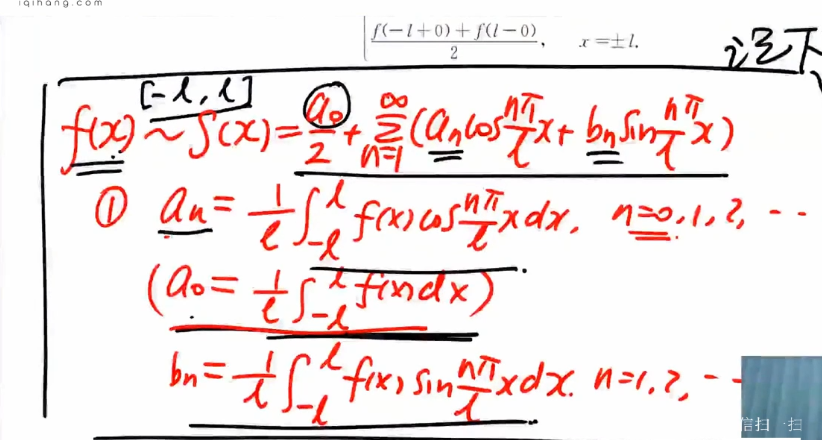 iqihang.com
f(-l+0)+f(l-0)/2, x=±l.
记下
[-l, l]
f(x)~S(x)=a₀/2+∑_{n=1}^{∞}(aₙcos nπ/l x+bₙsin nπ/l x)
① aₙ=1/l∫_{-l}^{l}f(x)cos nπ/l x dx, n=0,1,2,…
(a₀=1/l∫_{-l}^{l}f(x)dx)
bₙ=1/l∫_{-l}^{l}f(x)sin nπ/l x dx. n=1,2,…
信扫一扫